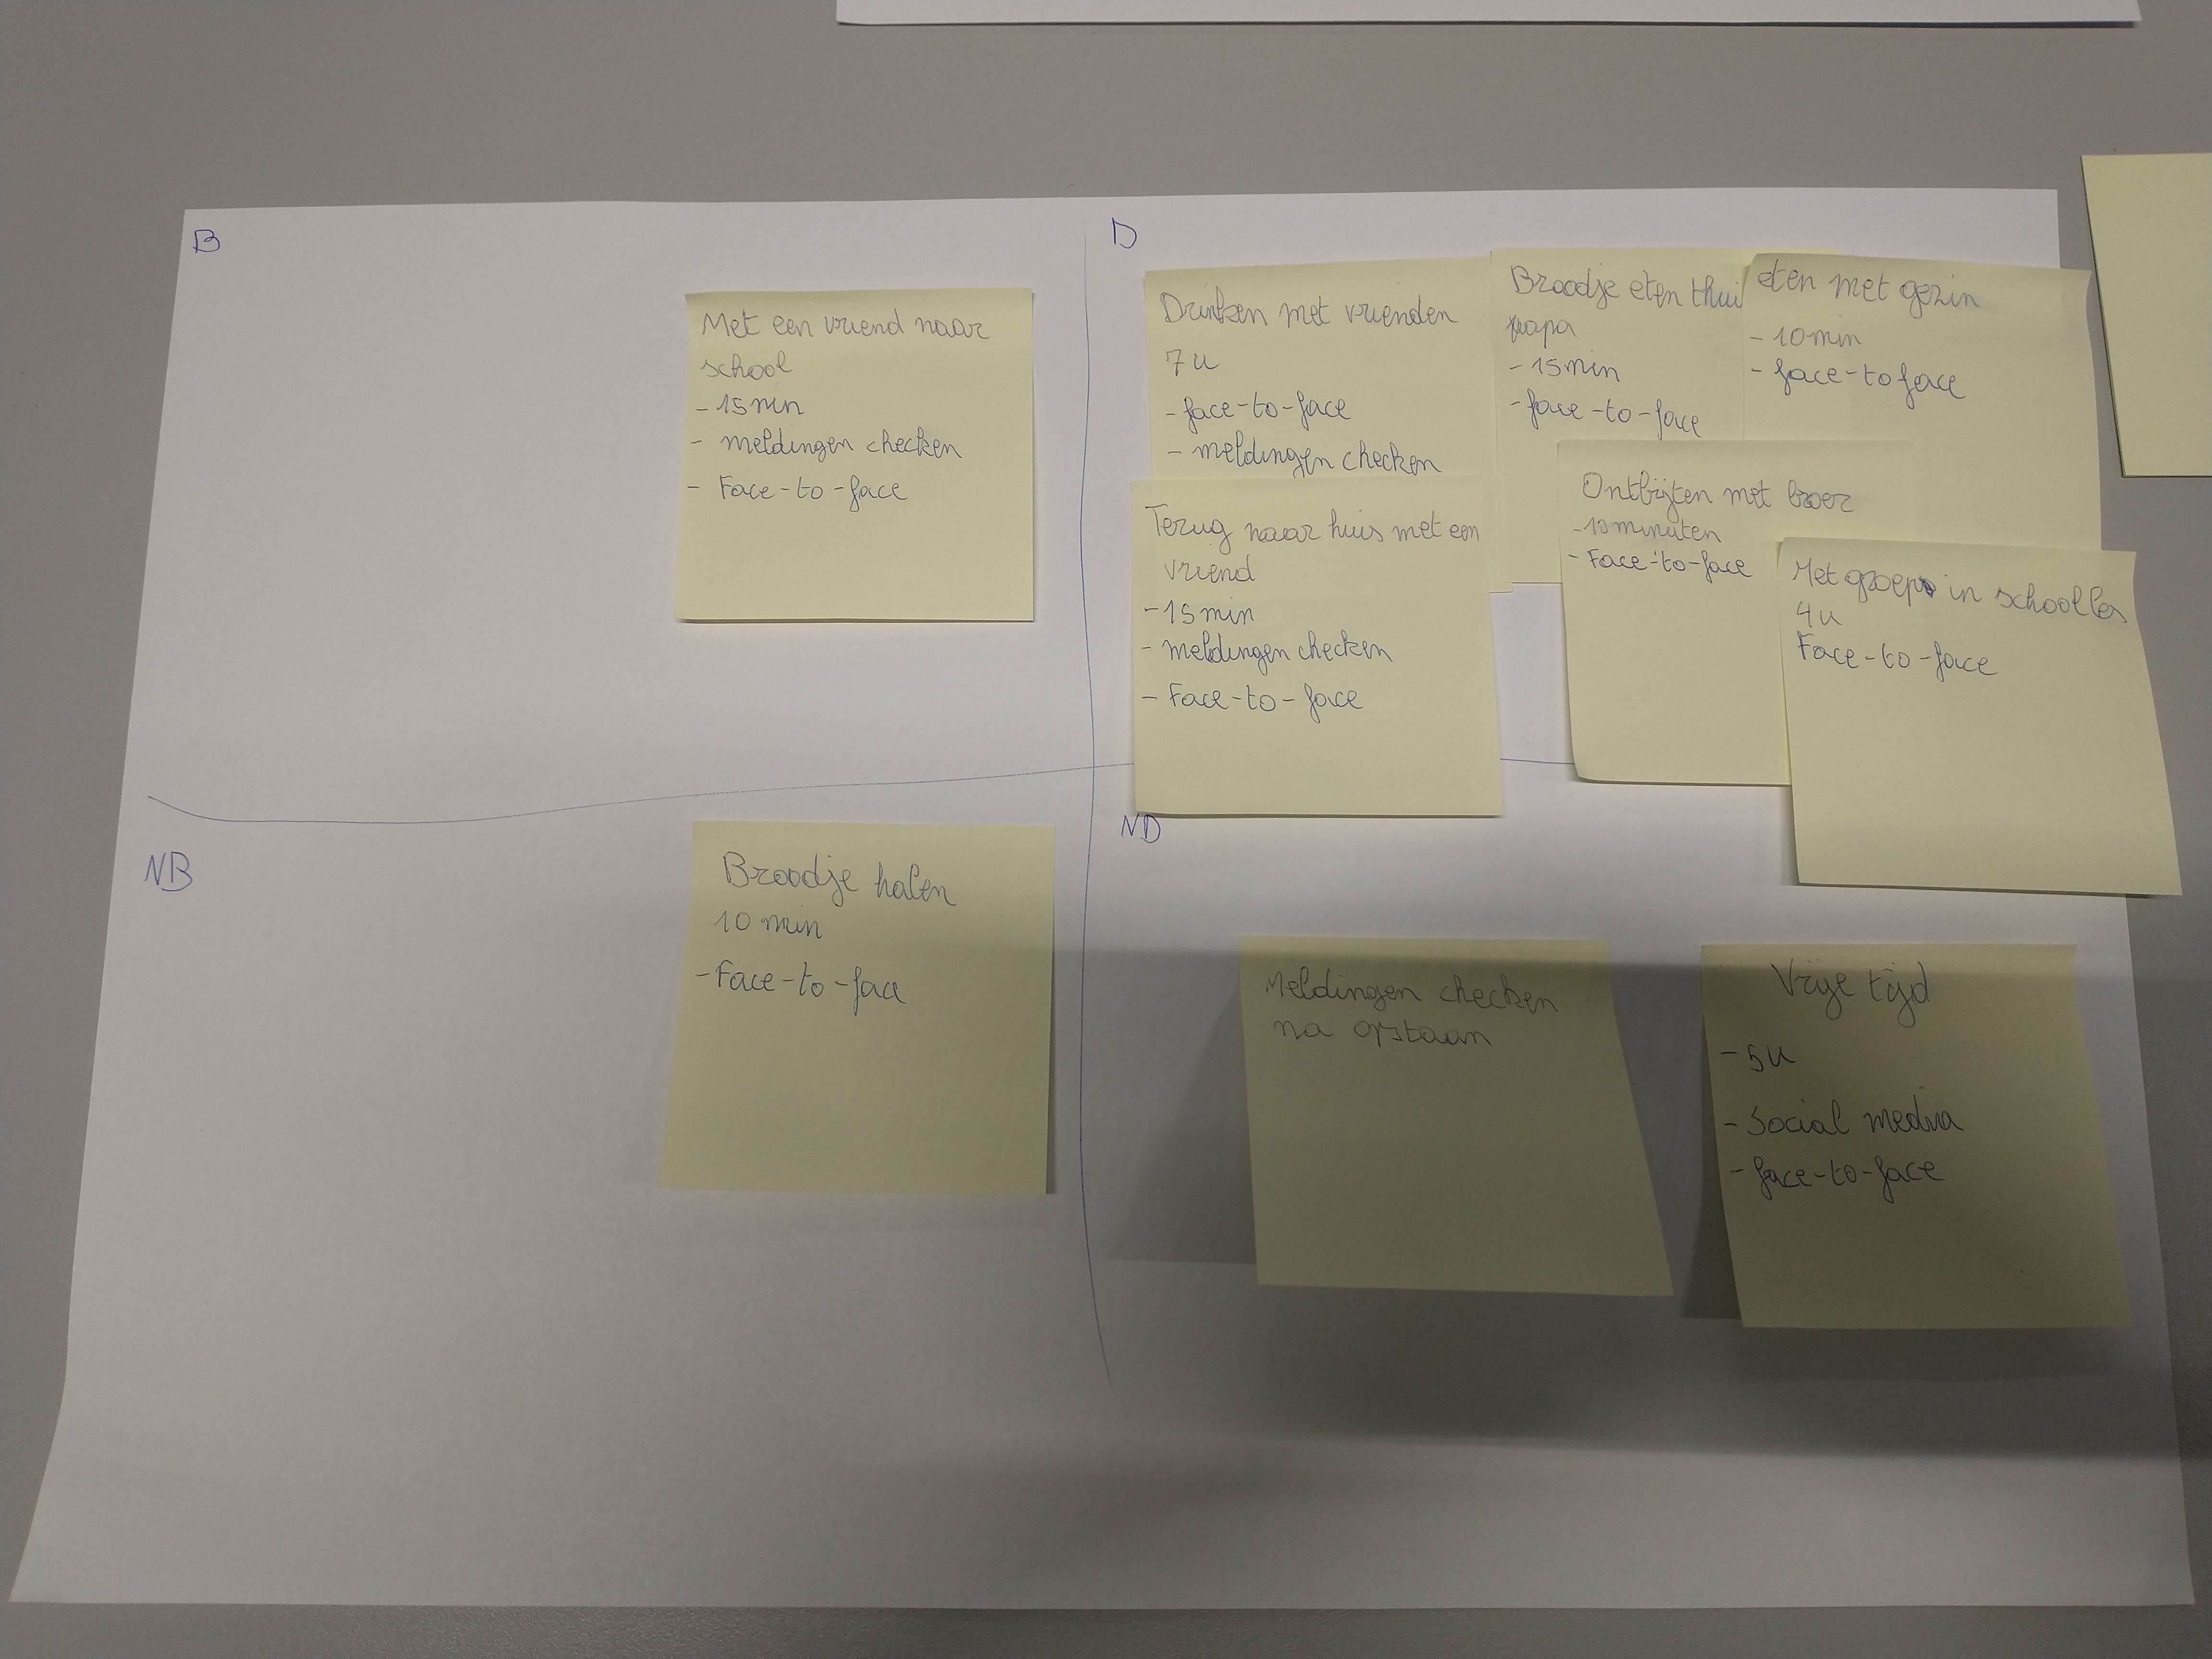 B
Met een vriend naar
school
- 15 min
- meldingen checken
- Face-to-face
D
Drinken met vrienden
7u
- face-to-face
- meldingen checken
Broodje eten thui
papa
- 15min
- face-to-face
eten met gezin
- 10min
- face-to face
Terug naar huis met een
vriend
- 15 min
- meldingen checken
- Face-to-face
Ontbijten met broer
- 10 minuten
- Face-to-face
Met groep in school les
4u
Face-to-face
NB
Broodje halen
10 min
- Face-to-face
ND
Meldingen checken
na opstaan
Vrije tijd
- 5u
- Social media
- face-to-face